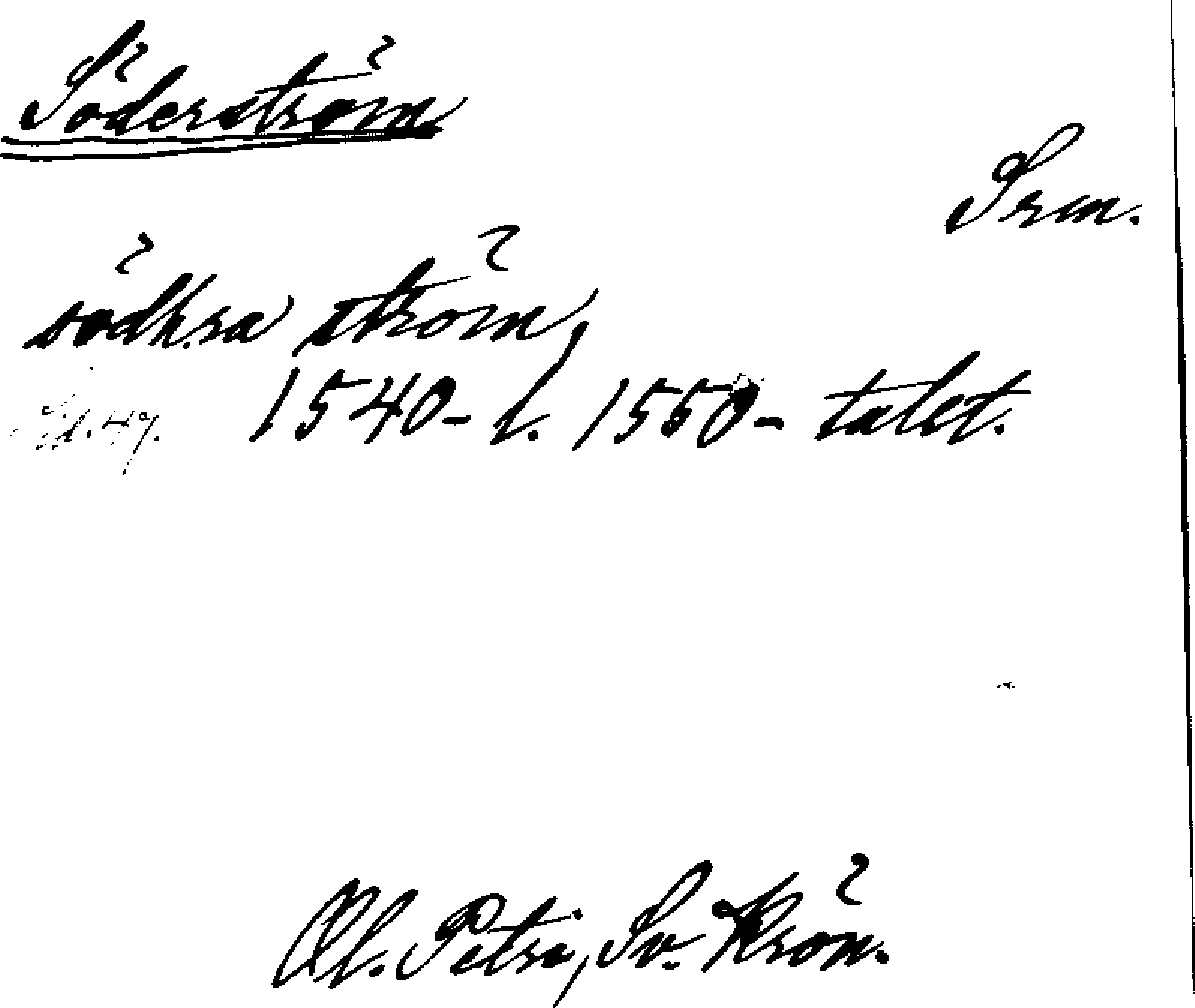 Söderström
Srm.
södhra ström,
1540- l. 1550-talet.
Ol. Petri, Sv. Krön.